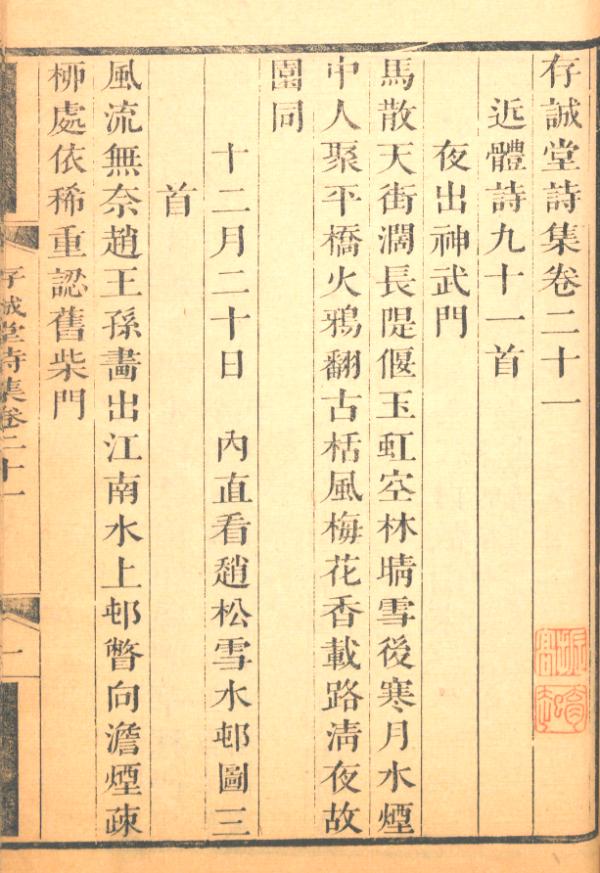 存誠堂詩集卷二十一
近體詩九十一首
夜出神武門
馬散天街濶長隄偃玉虹空林晴雪後寒月水煙
中人聚平橋火鴉翻古栝風梅花香載路淸夜故
園同
十二月二十日 內直看趙松雪水邨圖三
首
風流無奈趙王孫畵出江南水上邨瞥向澹煙疎
栁處依稀重認舊柴門
存誠堂詩集卷二十一
一